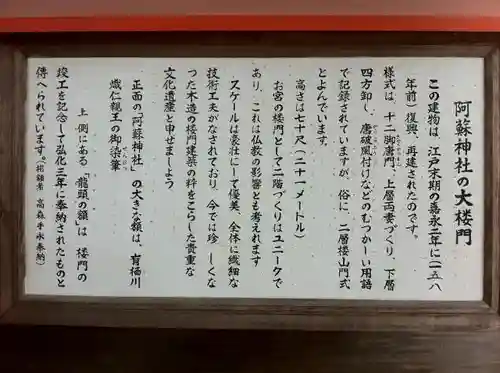 阿蘇神社の大楼門
この建物は、江戸末期の嘉永二年に(一五八
年前)復興、再建されたのです。
様式は、十二脚唐門、上層両妻づくり、下層
四方卸し、唐破風付けなどのむつかしい用語
で記録されていますが、俗に、二層楼山門式
とよんでいます。
高さは七十尺(二十一メートル)
お宮の楼門として二階づくりはユニークで
あり、これは仏教の影響とも考えれます
スケールは豪壮にして優美、全体に繊細な
技術工夫がなされており、今では珍しくな
った木造の楼門建築の粋をこらした貴重な
文化遺産と申せましょう
正面の「阿蘇神社」の大きな額は、有栖川
熾仁親王の御染筆
上側にある「龍頭の額」は 楼門の
竣工を記念して弘化三年に奉納されたものと
傳へられています。(揭額者 高森手永奉納)